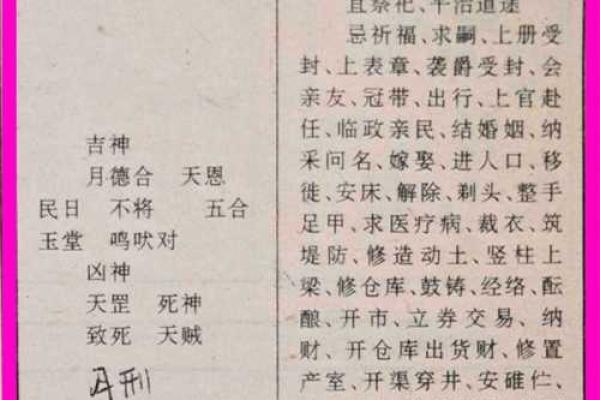 吉神
月德合 天恩
民日 不将 五合
玉堂 鸣吠对
凶神
天罡 死神
致死 天贼
月刑
宜祭祀、平治道途
忌祈福、求嗣、上册受
封、上表章、袭爵受封、会
亲友、冠带、出行、上官赴
任、临政亲民、结婚姻、纳
采问名、嫁娶、进人口、移
徙、安床、解除、剃头、整手
足甲、求医疗病、裁衣、筑
堤防、修造动土、竖柱上
梁、修仓库、鼓铸、经络、酝
酿、开市、立券交易、纳
财、开仓库出货财、修置
产室、开渠穿井、安碓硙、